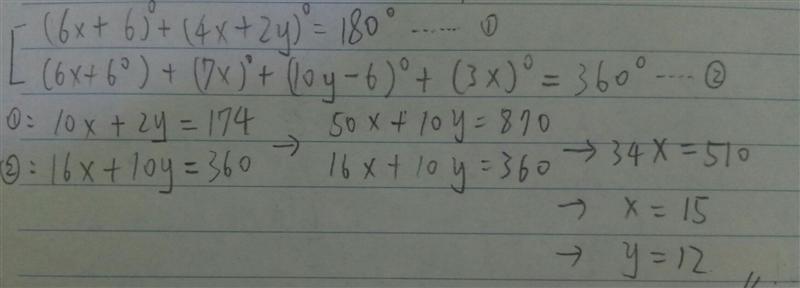 (6x + 6)° + (4x + 2y)° = 180° ...... ①
(6x + 6°) + (7x)° + (10y - 6)° + (3x)° = 360° ..... ②
①: 10x + 2y = 174 → 50x + 10y = 870
②: 16x + 10y = 360 16x + 10y = 360 → 34x = 510
→ x = 15
→ y = 12 //